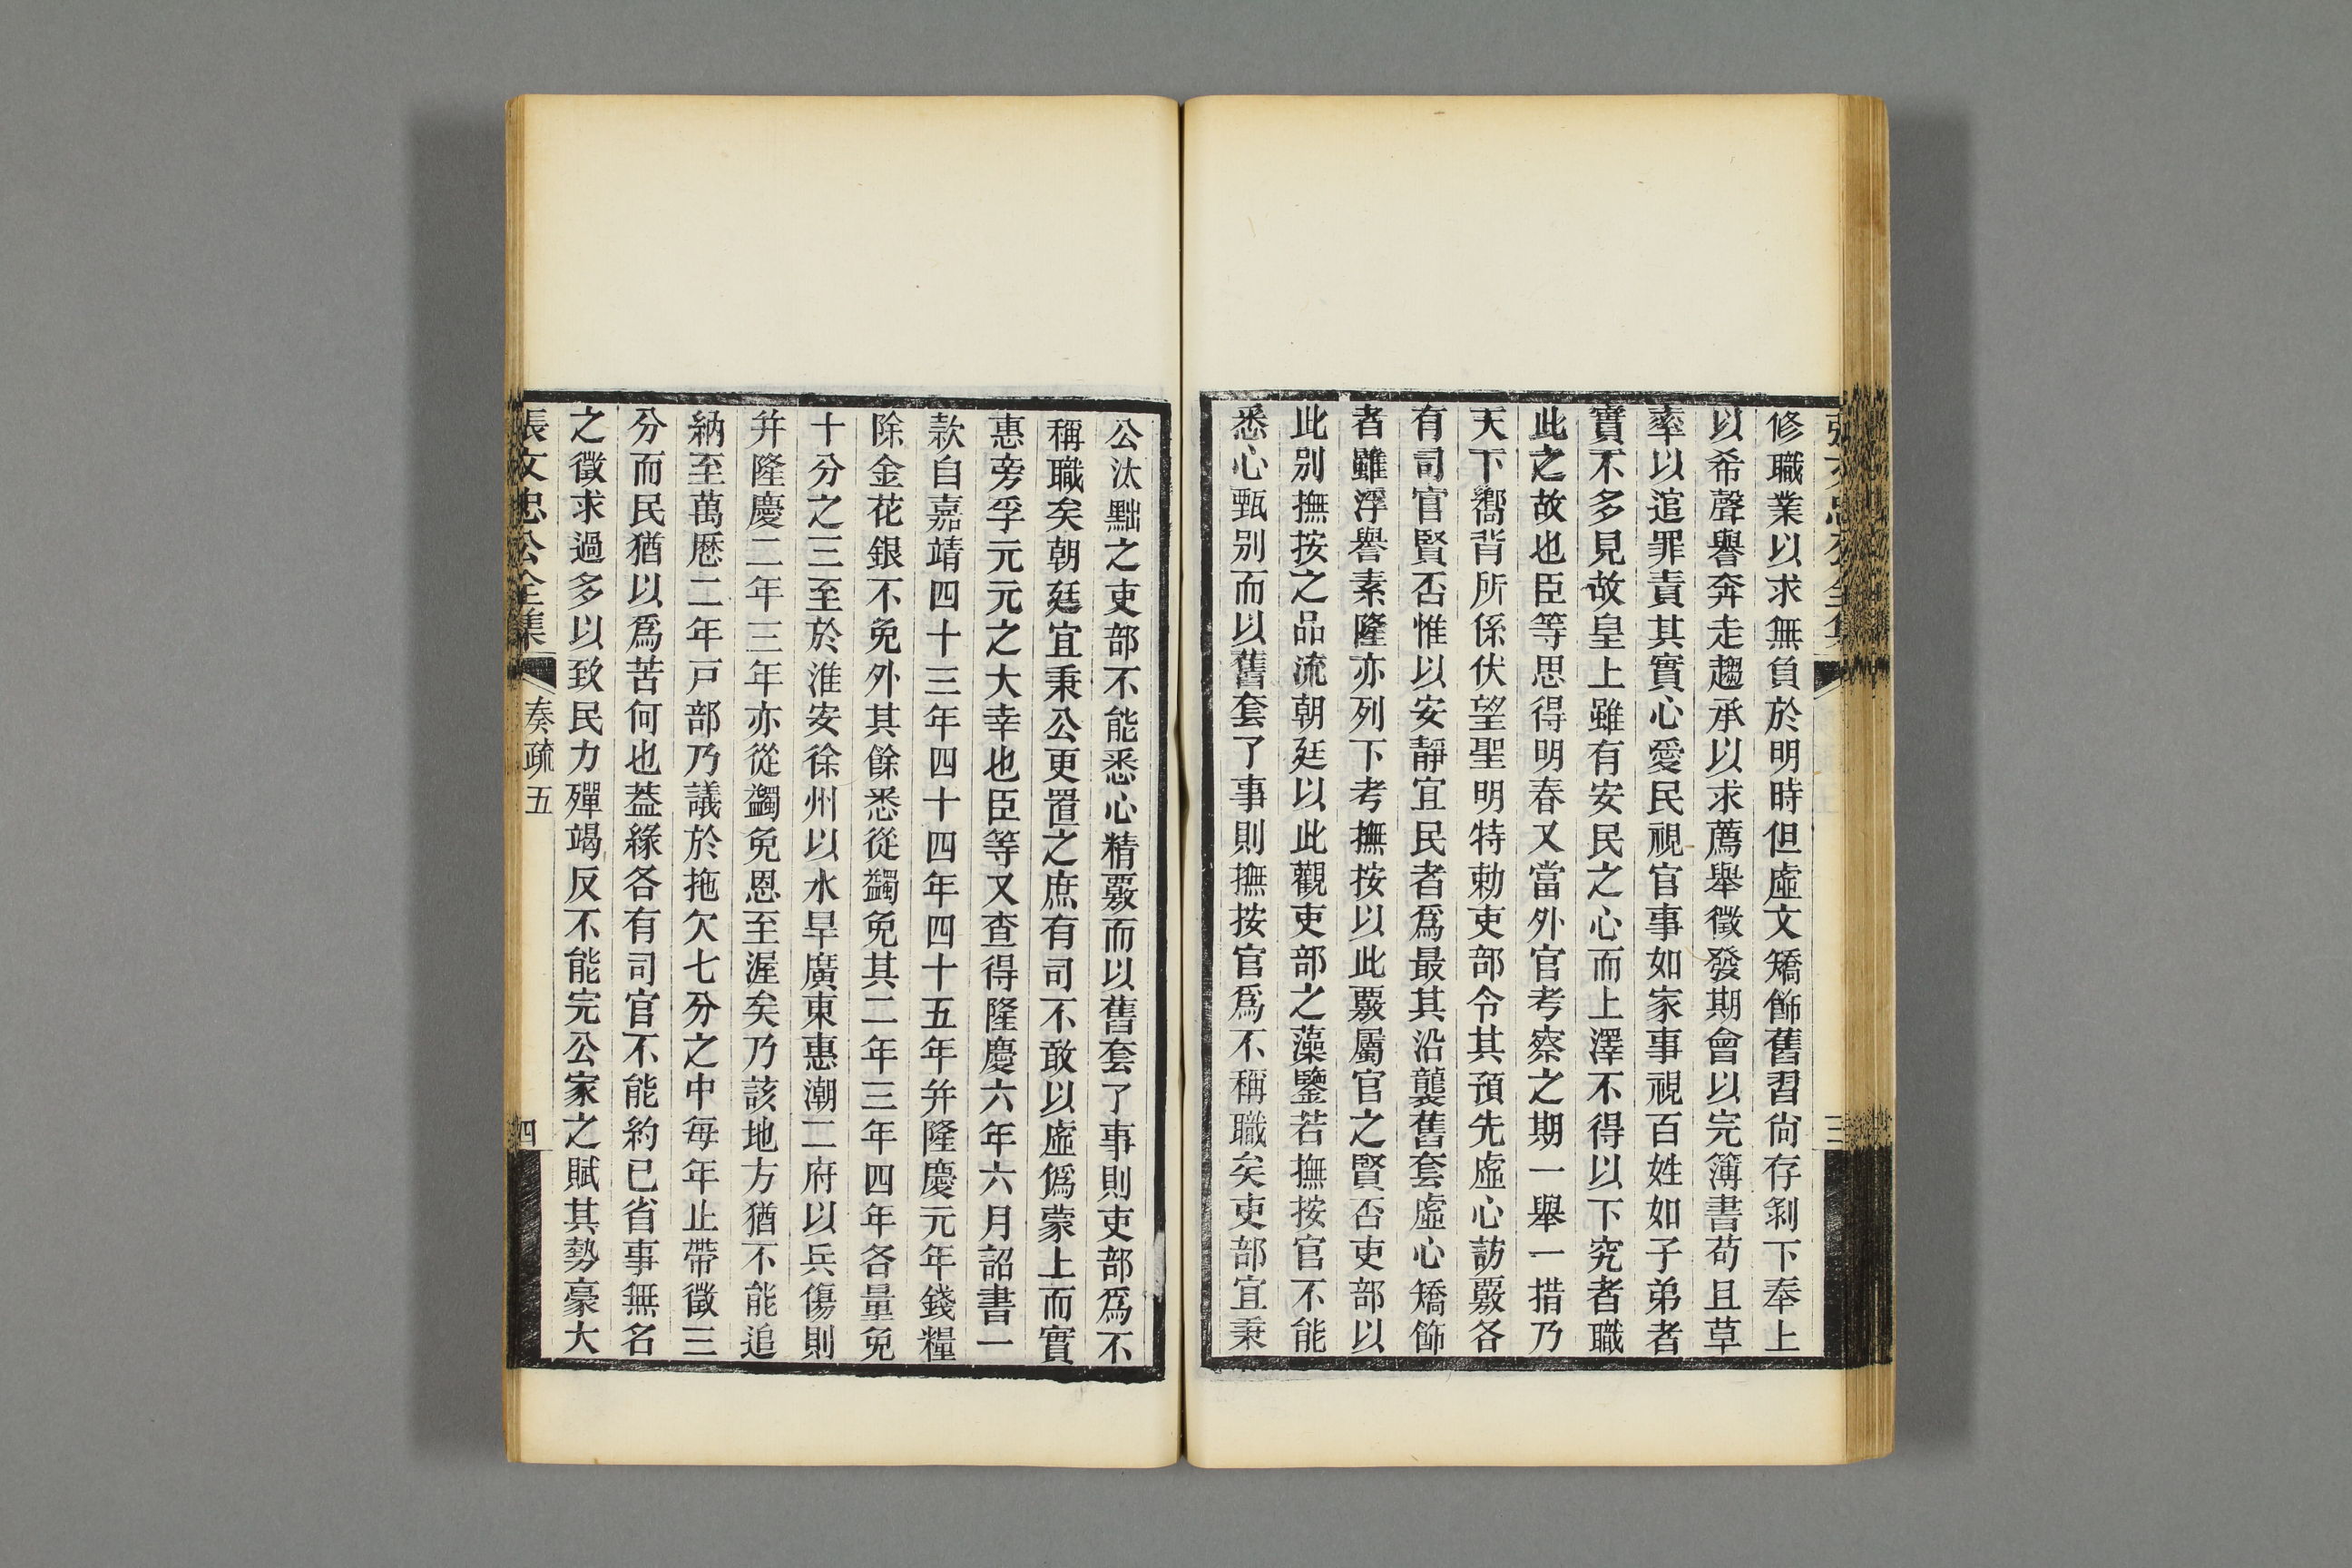 修職業以求無負於明時但虛文矯飾舊習尙存剝下奉上
以希聲譽奔走趨承以求薦舉徵發期會以完簿書苟且草
率以逭罪責其實心愛民視官事如家事視百姓如子弟者
實不多見故皇上雖有安民之心而上澤不得以下究者職
此之故也臣等思得明春又當外官考察之期一舉一措乃
天下嚮背所係伏望聖明特勅吏部令其預先虛心訪覈各
有司官賢否惟以安靜宜民者爲最其沿襲舊套虛心矯飾
者雖浮譽素隆亦列下考撫按以此覈屬官之賢否吏部以
此别撫按之品流朝廷以此觀吏部之藻鑒若撫按官不能
悉心甄别而以舊套了事則撫按官爲不稱職矣吏部宜秉
公汰黜之吏部不能悉心精覈而以舊套了事則吏部爲不
稱職矣朝廷宜秉公更置之庶有司不敢以虛僞蒙上而實
惠旁孚元元之大幸也臣等又查得隆慶六年六月詔書一
款自嘉靖四十三年四十四年四十五年并隆慶元年錢糧
除金花銀不免外其餘悉從蠲免其二年三年四年各量免
十分之三至於淮安徐州以水旱廣東惠潮二府以兵傷則
并隆慶二年三年亦從蠲免恩至渥矣乃該地方猶不能追
納至萬厯二年戸部乃議於拖欠七分之中每年止帶徵三
分而民猶以爲苦何也葢緣各有司官不能約已省事無名
之徵求過多以致民力殫竭反不能完公家之賦其勢豪大
張文忠公全集 奏疏五 四